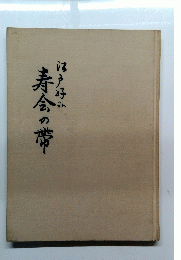 江戸好み
寿会の帶